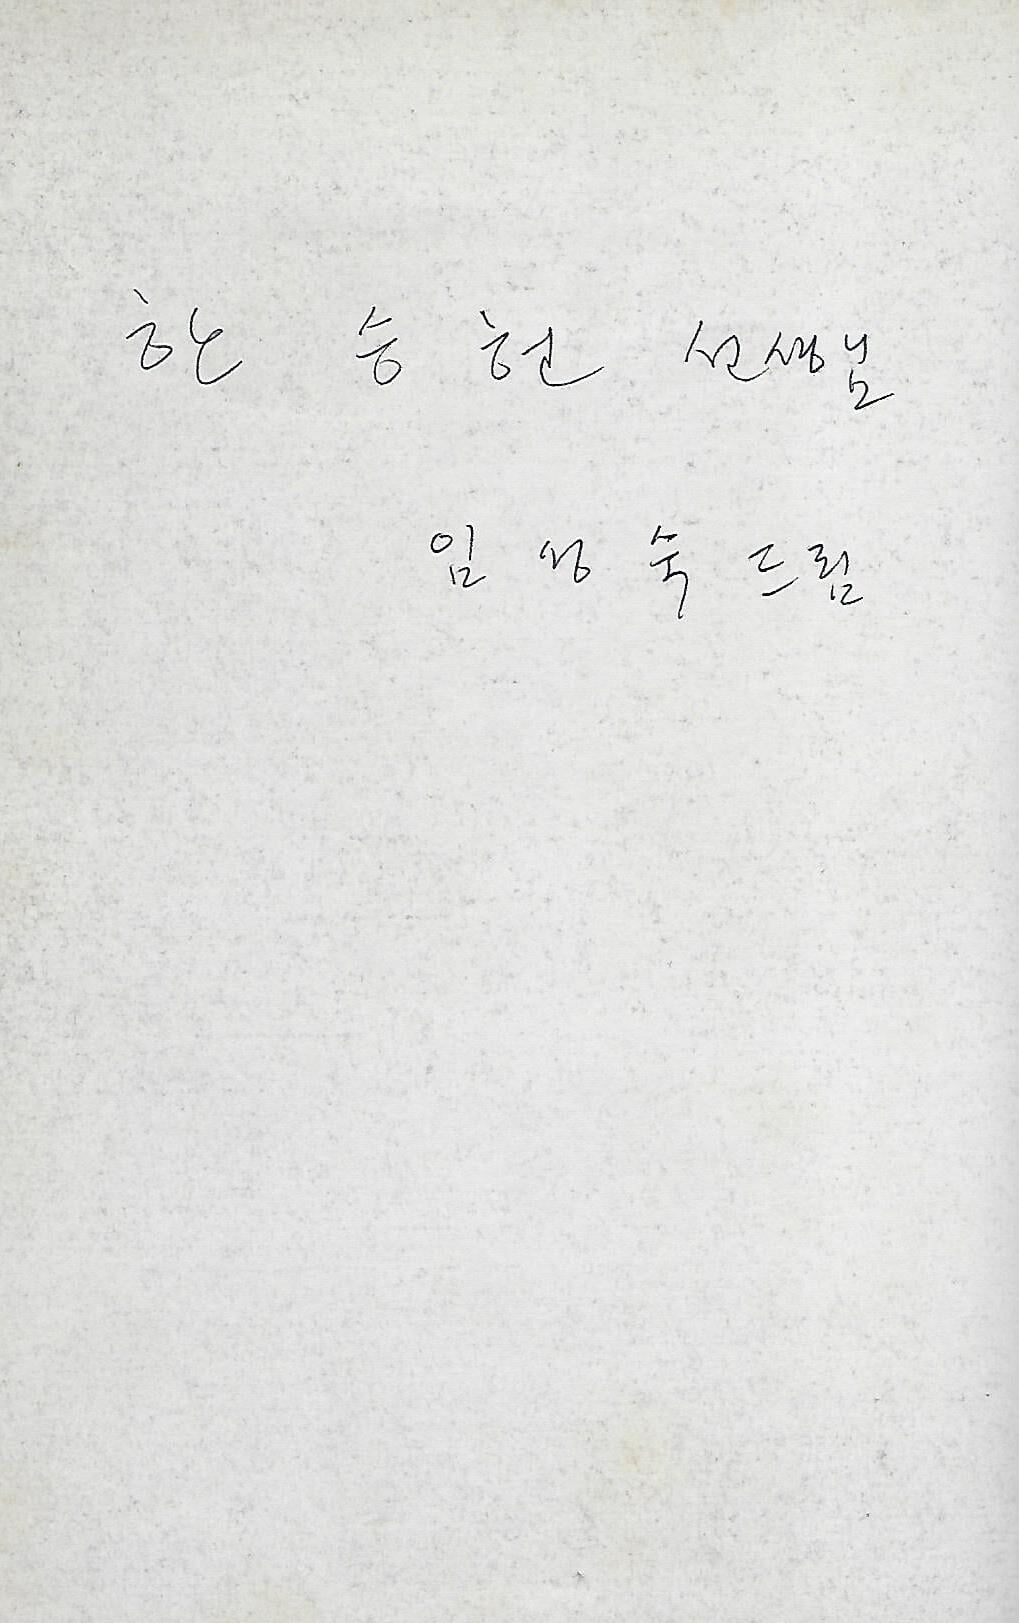 한 승 헌 선생님
임 성 숙 드림